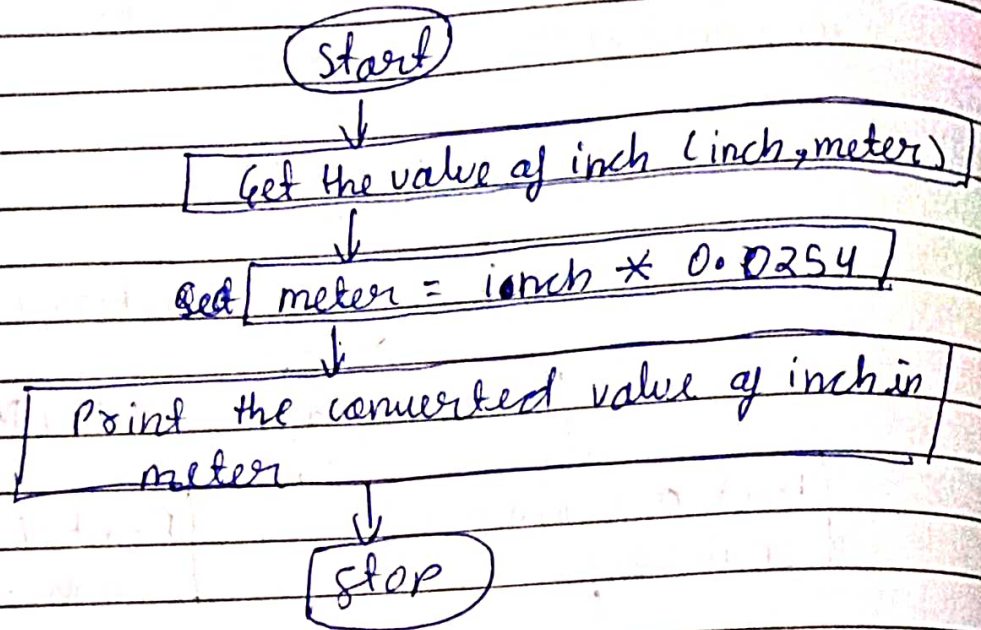 Start
Get the value of inch (inch, meter)
Set meter = inch * 0.0254
Print the converted value of inch in
meter
Stop